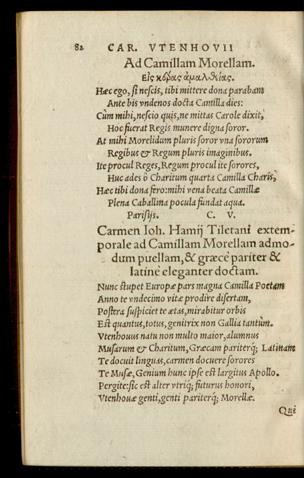 82 CAR. VTENHOVII
Ad Camillam Morellam.
Εἰς κέρας ἀμαλθείας.
Hæc ego, si nescis, tibi mittere dona parabam
Ante bis vndenos docta Camilla dies:
Cùm mihi, nescio quis, ne mittas Carole dixit,
Hoc fuerat Regis munere digna soror.
At mihi Morelidum pluris soror vna sororum
Regibus & Regum pluris imaginibus.
Ite procul Reges, Regum procul ite sorores,
Huc ades ô Charitum quarta Camilla Charis,
Hæc tibi dona fero: mihi vena beata Camillæ
Plena Caballina pocula fundat aqua.
Parisijs. C. V.
Carmen Ioh. Hamij Tiletani extem-
porale ad Camillam Morellam admo-
dum puellam, & græce pariter &
latinè eleganter doctam.
Nunc stupet Europæ pars magna Camilla Poetam
Anno te vndecimo vitæ prodire disertam,
Postera suspiciet te ætas, mirabitur orbis
Est quantus, totus, genitrix non Gallia tantùm.
Vtenhouus natu non multo maior, alumnus
Musarum & Charitum, Græcam pariterq́; Latinam
Te docuit linguas, carmen docuere sorores
Te Musæ, Genium hunc ipse est largitus Apollo.
Pergite: sic est alter vtriq; futurus honori,
Vtenhouæ genti, genti pariterq́; Morellæ.
Quæ